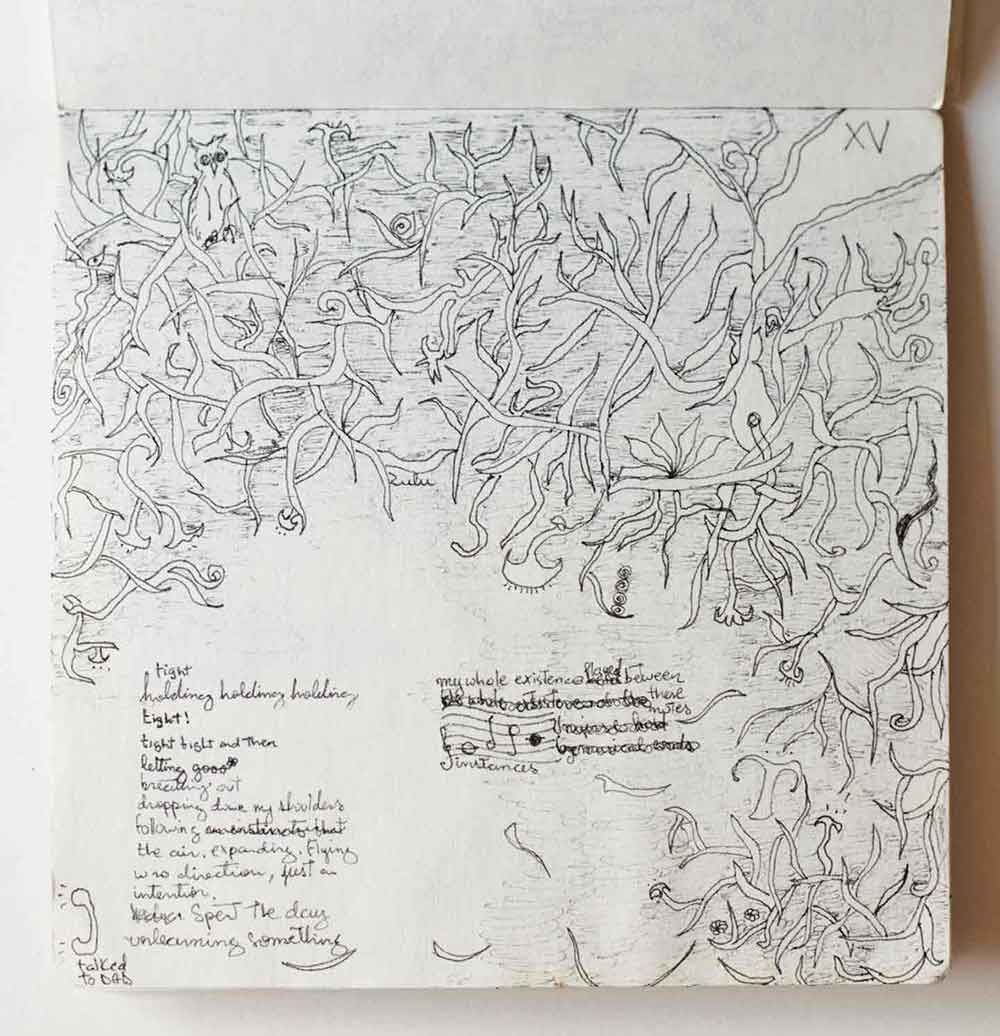 XV
Zulu
tight
holding holding holding
tight!
tight tight and then
letting gooo
breathing out
dropping down my shoulders
following
the air. expanding. Flying
w no direction, just an
intention.
Spent the day
unlearning something
talked
to DAD
my whole existence staged between
these
notes
instances